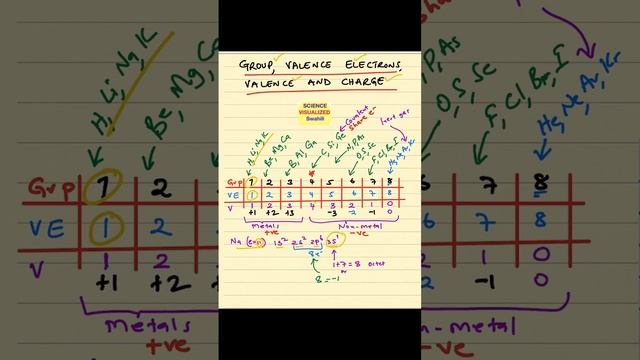 GROUP, VALENCE ELECTRONS,
VALENCE AND CHARGE
SCIENCE
VISUALIZED
Swahili
Covalent
Share e-
Inert gas
H, Li, Na, K
Be, Mg, Ca
B, Al, Ga
C, Si, Ge
N, P, As
O, S, Se
F, Cl, Br, I
He, Ne, Ar, Kr
Grp 1 2 3 4 5 6 7 8
VE 1 2 3 4 5 6 7 8
V 1 2 3 4 3 2 1 0
+1 +2 +3 -3 -2 -1 0
Metals
+ve
Non-metal
-ve
Na (e=11) 1s² 2s² 2p⁶ 3s¹
8e-
1+7=8 octet
or
8=-1
H, Li, Na, K
Be, Mg, Ca
P, As
O, S, Se
F, Cl, Br, I
He, Ne, Ar, Kr
Grp 1 2 7 8
VE 1 2 7 8
V 1 2 1 0
+1 +2 -1 0
Metals
+ve
n-metal
-ve